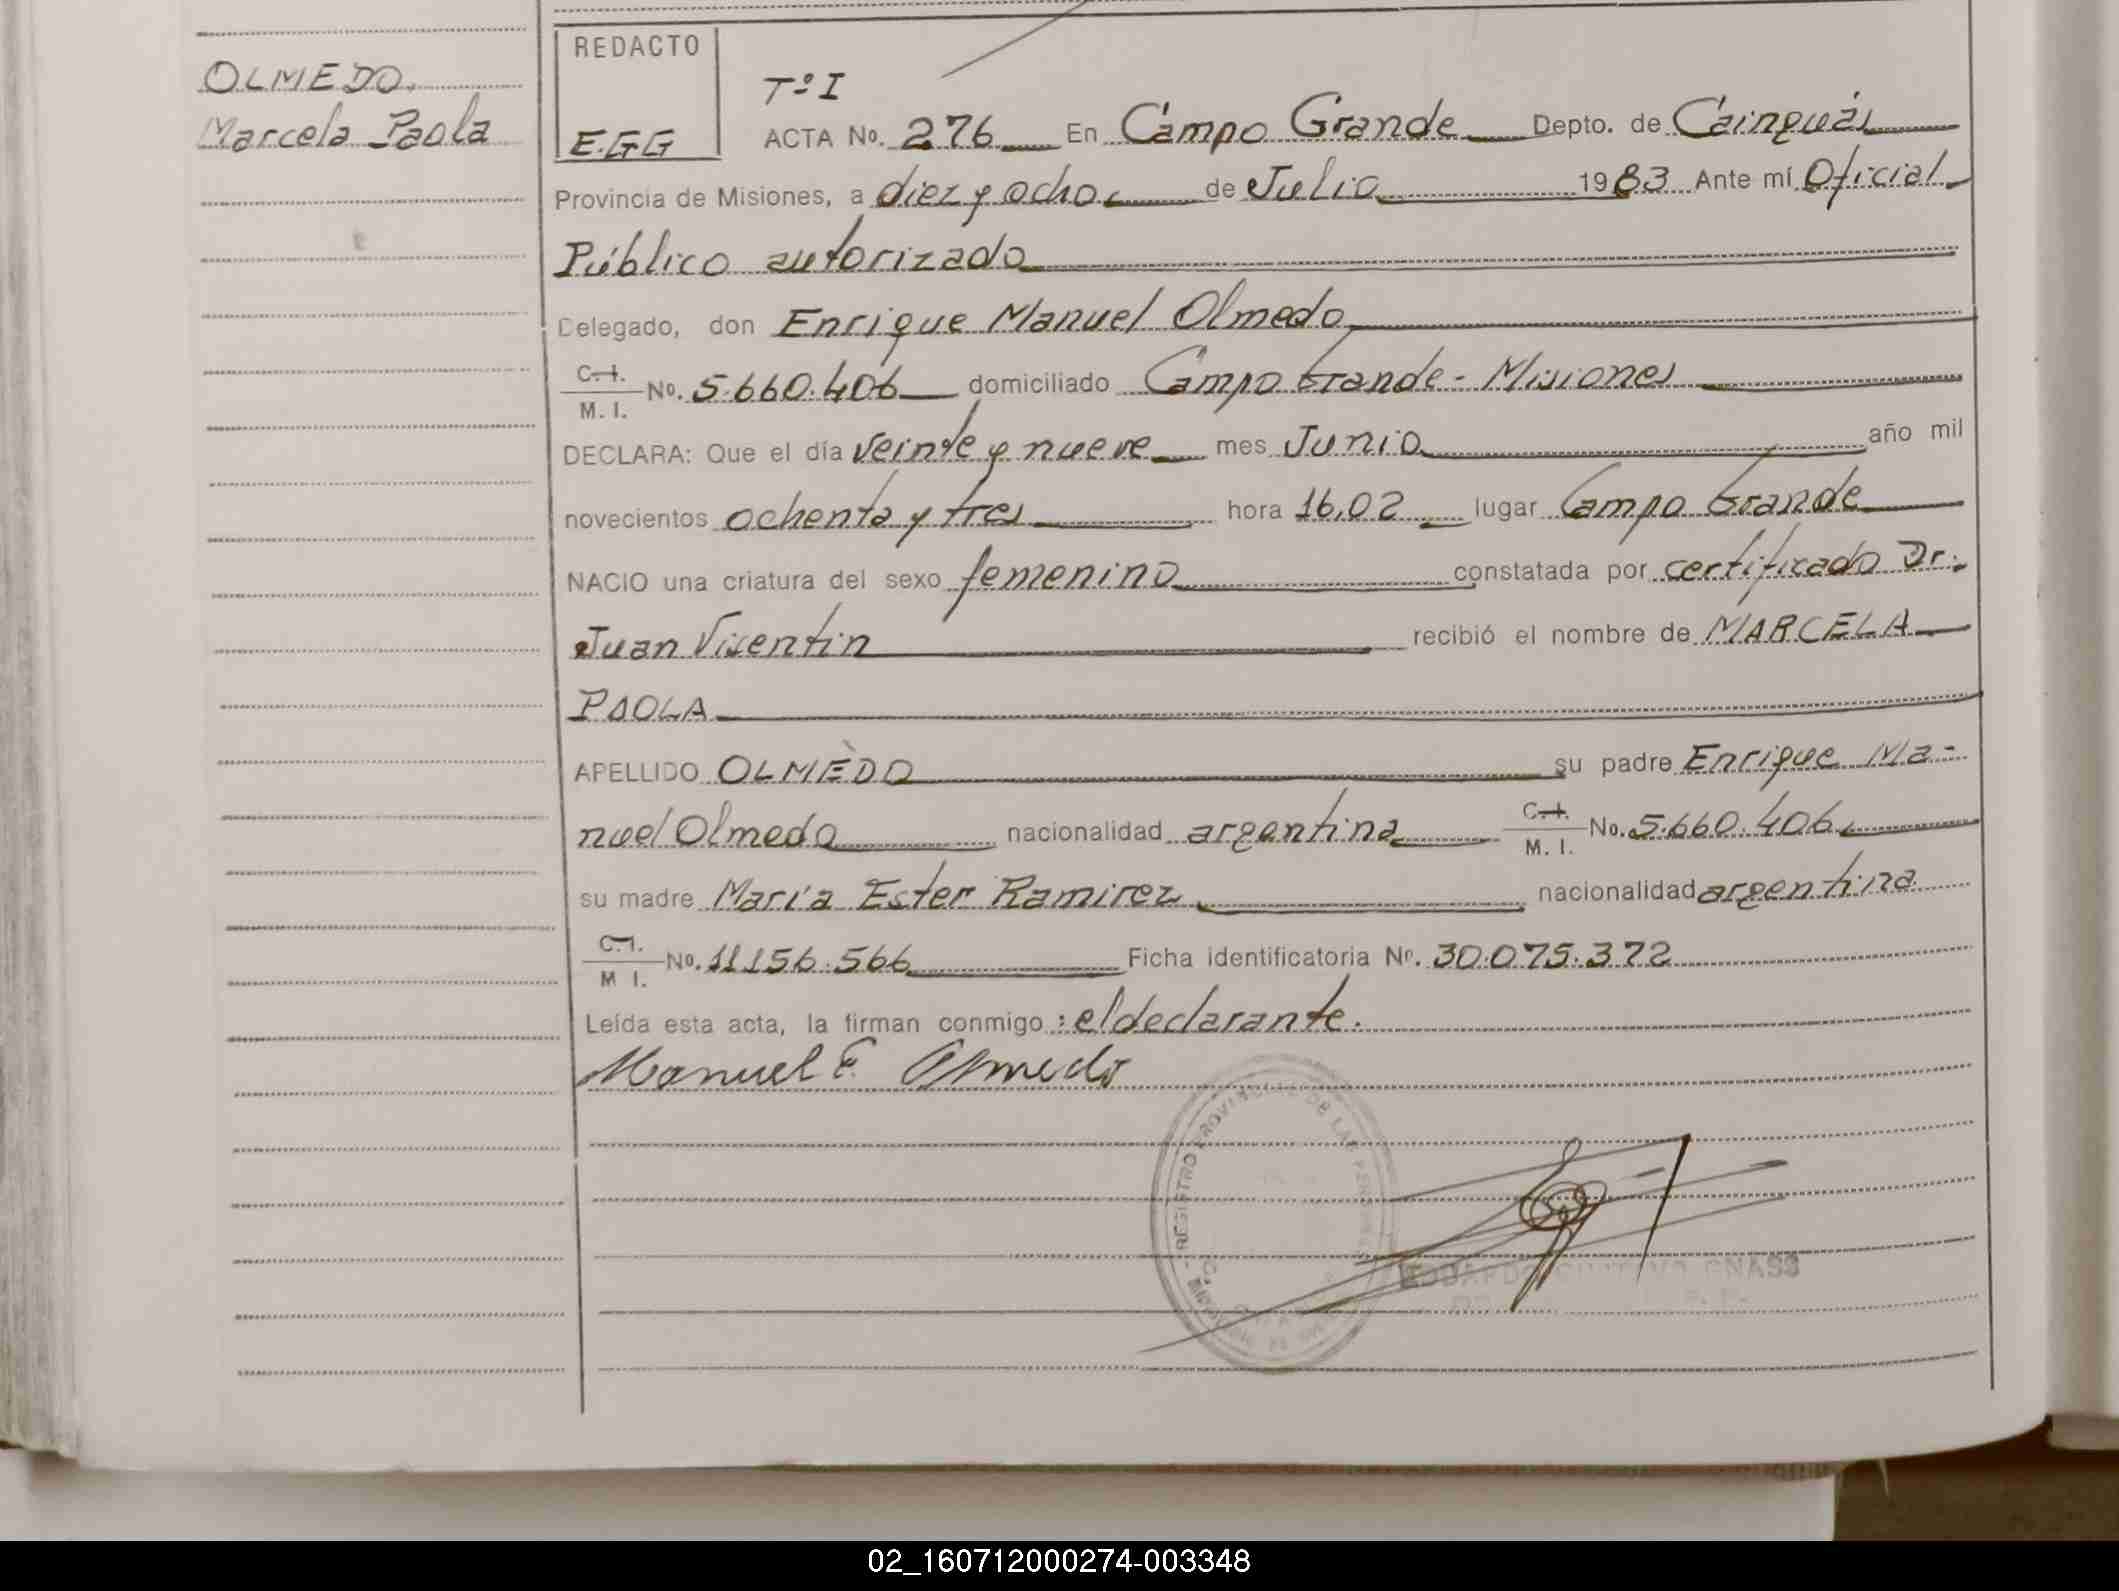 OLMEDO,
Marcela Paola
REDACTO
E.G.G
Tº I
ACTA No. 276 En Campo Grande Depto. de Cainguás
Provincia de Misiones, a diez y ocho de Julio 1983 Ante mí Oficial
Público autorizado
Delegado, don Enrique Manuel Olmedo
C.I.
M. I. No. 5.660.406 domiciliado Campo Grande - Misiones
DECLARA: Que el día veinte y nueve mes Junio año mil
novecientos ochenta y tres hora 16,02 lugar Campo Grande
NACIO una criatura del sexo femenino constatada por certificado Dr.
Juan Visentin recibió el nombre de MARCELA
PAOLA
APELLIDO OLMEDO su padre Enrique Ma-
nuel Olmedo nacionalidad argentina C.I. M. I. No. 5.660.406
su madre María Ester Ramirez nacionalidad argentina
C.I.
M I. No. 11.156.566 Ficha identificatoria No. 30.075.372
Leída esta acta, la firman conmigo: el declarante.
Manuel E. Olmedo
REGISTRO PROVINCIAL DE LAS PERSONAS
EDUARDO GUSTAVO GNASS
02_160712000274-003348